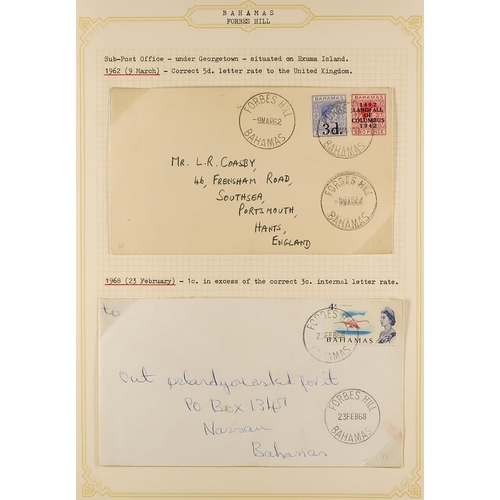 BAHAMAS
FORBES HILL
Sub-Post Office - under Georgetown - situated on Exuma Island.
1962 (9 March) - Correct 5d. letter rate to the United Kingdom.
FORBES HILL
-9MAR62
BAHAMAS
BAHAMAS
3d.
BAHAMAS
1492
LANDFALL
OF
COLUMBUS
1942
Mr. L.R. Coasby,
46, Frensham Road,
Southsea,
Portsmouth,
Hants,
England
FORBES HILL
-9MAR62
BAHAMAS
1968 (23 February) - 1c. in excess of the correct 3c. internal letter rate.
to
4c
BAHAMAS
FORBES HILL
23FEB68
BAHAMAS
Out
PO Box 1347
Nassau
Bahamas
FORBES HILL
23FEB68
BAHAMAS